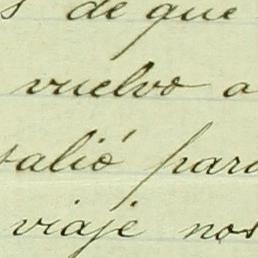 de que
vuelvo a
salió para
viaje nos